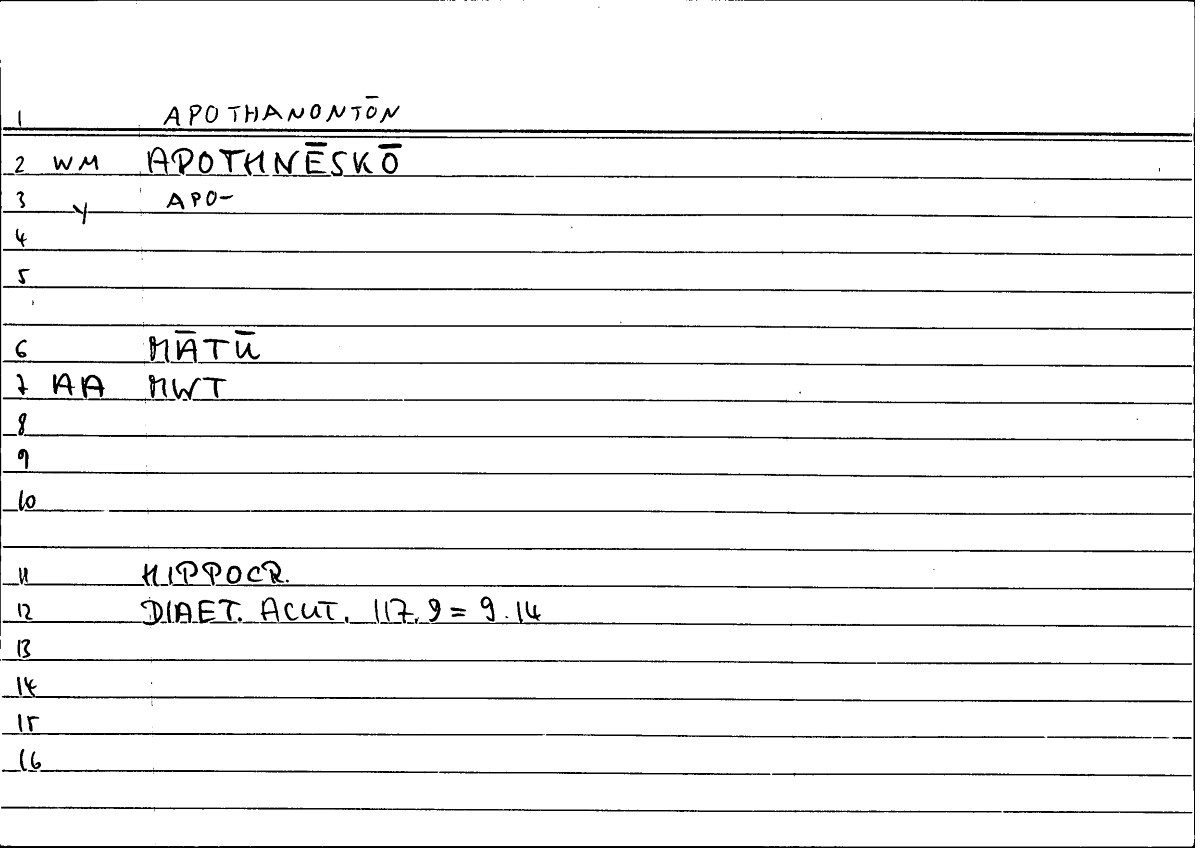 1 APOTHANONTŌN
2 WM APOTHNĒSKŌ
3 Y APO-
4
5
6 MĀTŪ
7 AA MWT
8
9
10
11 HIPPOCR.
12 DIAET. ACUT. 117.9 = 9.14
13
14
15
16